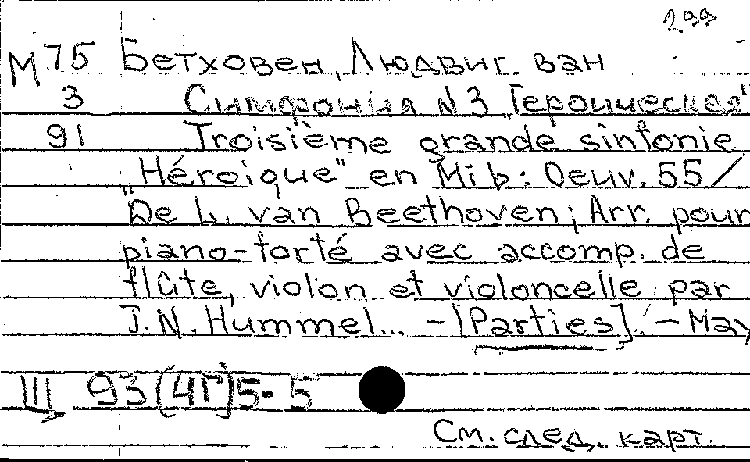 299
М 75 Бетховен, Людвиг ван
3 Симфония №3 "Героическая"
91 Troisième grande sinfonie
"Héroique" en Mi b: Oeuv. 55 /
De L. van Beethoven; Arr. pour
piano-forté avec accomp. de
flûte, violon et violoncelle par
J.N. Hummel... – [Parties]. – May
Ш 93(4Г)5-5
См. след. карт.